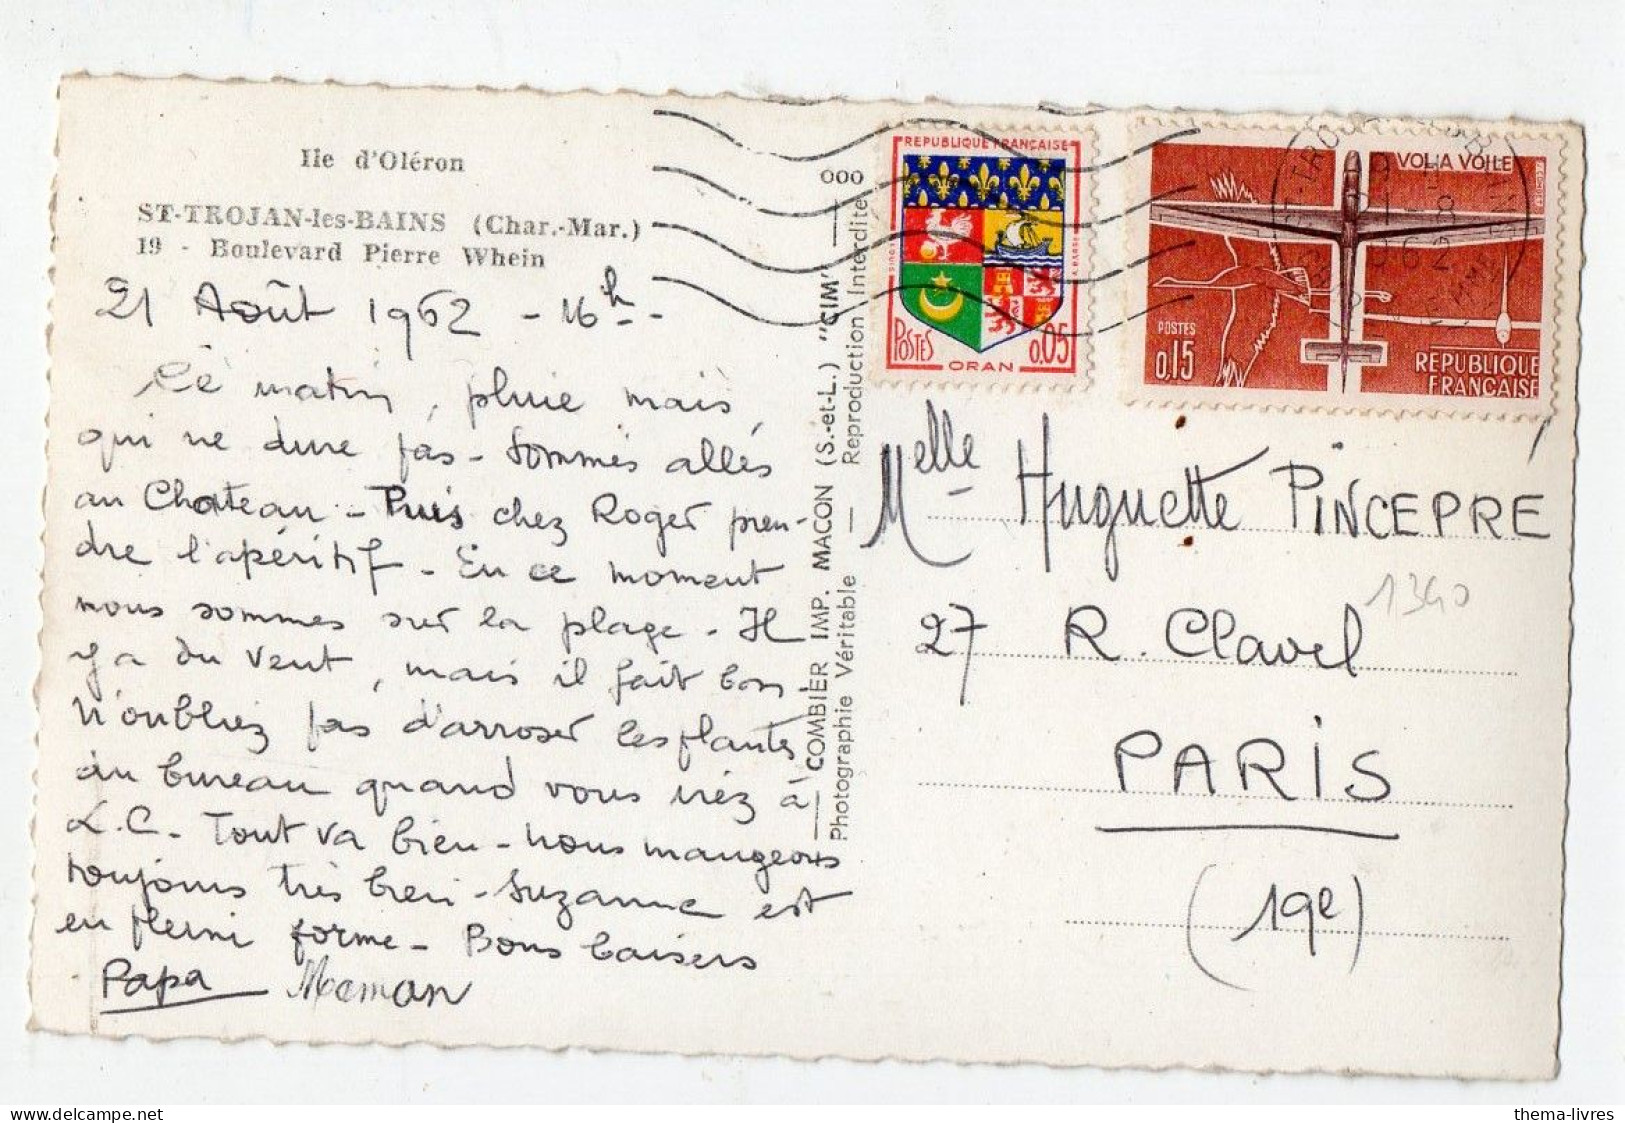 Ile d'Oléron
ST-TROJAN-les-BAINS (Char.-Mar.)
19 - Boulevard Pierre Whein
21 Août 1962 - 16h -
Ce matin, pluie mais
qui ne dure pas - Sommes allés
au Chateau - Puis chez Roger pren-
dre l'apéritif - En ce moment
nous sommes sur la plage - Il
y a du vent, mais il fait bon
N'oubliez pas d'arroser les plantes
au bureau quand vous irez à
L.C. - Tout va bien - nous mangeons
toujours très bien - Suzanne est
en pleine forme - Bons baisers
Papa Maman
000
COMBIER IMP. MACON (S.-et-L.) "CIM"
Photographie Véritable — Reproduction Interdite
REPUBLIQUE FRANÇAISE
POSTES
0.05
ORAN
VOL A VOILE
POSTES
0,15
REPUBLIQUE
FRANÇAISE
Melle Huguette PINCEPRE
1340
27 R. Clavel
PARIS
(19e)
thema-livres